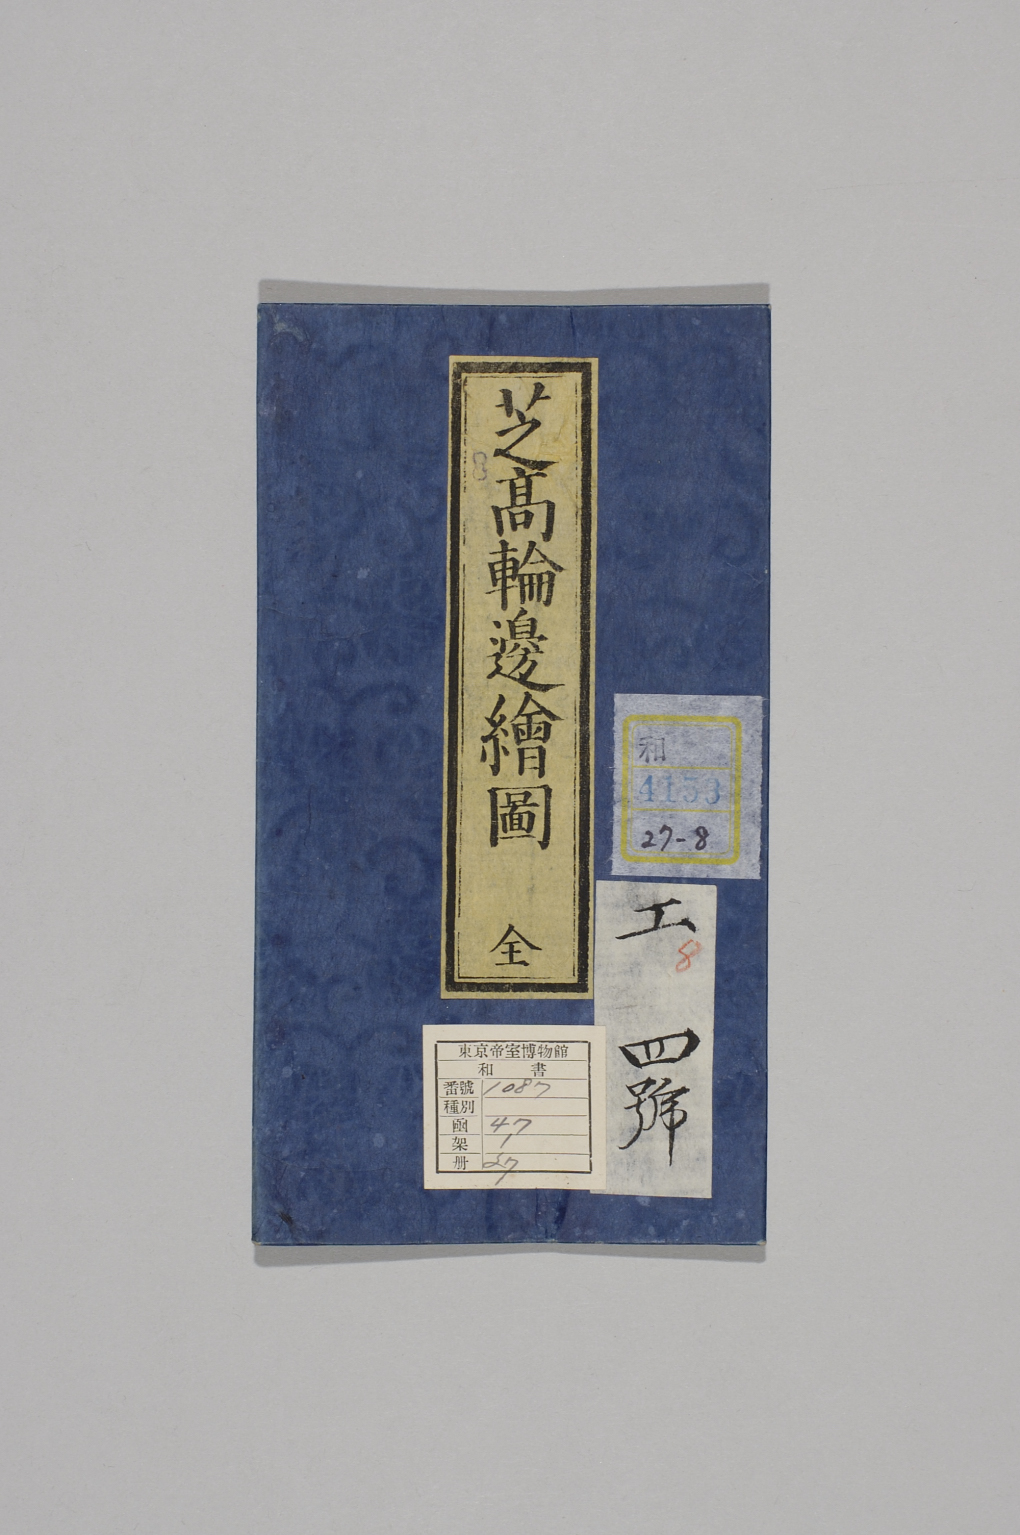 芝髙輪邊繪圖 全
8
和
4153
27-8
工
8
四號
東京帝室博物館
和 書
番號 1087
種別
凾 47
架 1
册 27